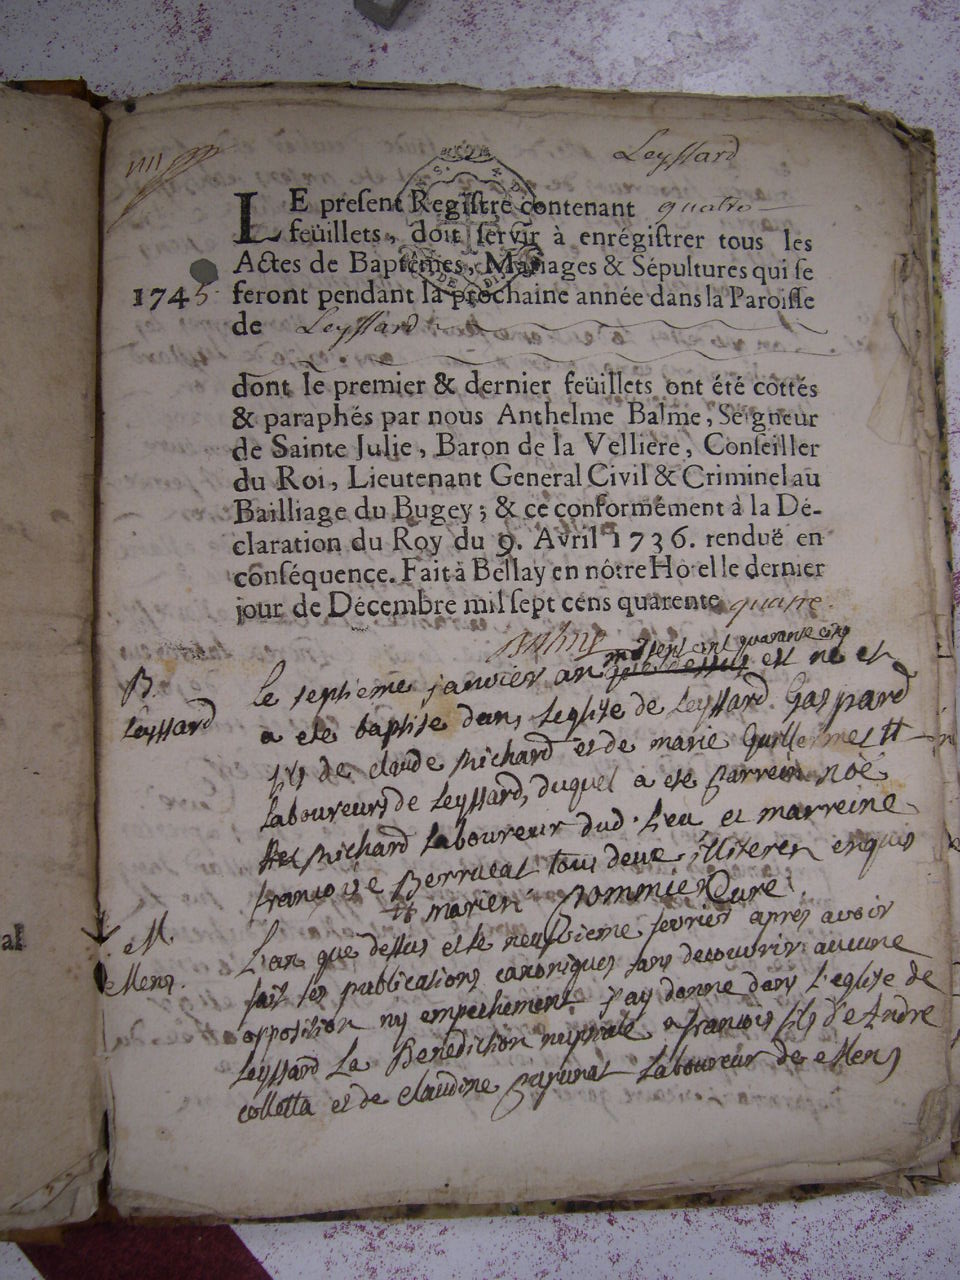 Leyssard
LE preſent Regiſtre contenant quatre
feüillets, doit ſervir à enrégiſtrer tous les
Actes de Baptêmes, Mariages & Sépultures qui ſe
1745 feront pendant la prochaine année dans la Paroiſſe
de Leyssard
dont le premier & dernier feüillets ont été cottés
& paraphés par nous Anthelme Balme, Seigneur
de Sainte Julie, Baron de la Velliere, Conſeiller
du Roi, Lieutenant General Civil & Criminel au
Bailliage du Bugey; & ce conformément à la Dé-
claration du Roy du 9. Avril 1736. renduë en
conſéquence. Fait à Bellay en nôtre Hoſtel le dernier
jour de Décembre mil ſept cens quarente quatre.
Balme
mil sept cent quarante cinq
B. Le septieme janvier an est né et
Leyssard a ete baptise dans leglise de Leyssard Gaspard
fils de claude Richard et de marie Guillermet
Laboureurs de Leyssard, duquel a ete parrein noë
Richard Laboureur dud. Lieu et marreine
françoise Berrucat tous deux illiteres enquis
marier pommier Curé
M. L'an que dessus et le neufvieme fevrier apres avoir
Mens. fait les publications canoniques sans decouvrir aucune
opposition ny empechement j'ay donne dans l'eglise de
Leyssard La Benediction nuptiale a francois fils d'e Andre
colletta et de claudine Laboureur de Mens
al